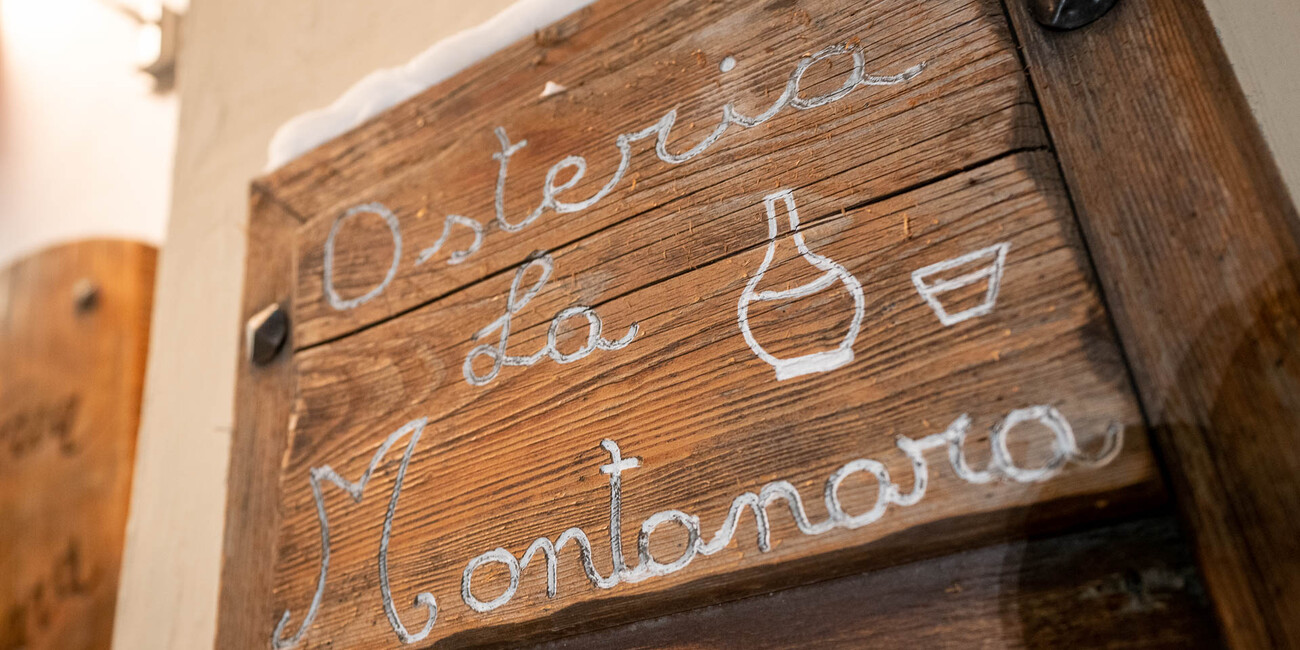 Osteria
La
Montanara